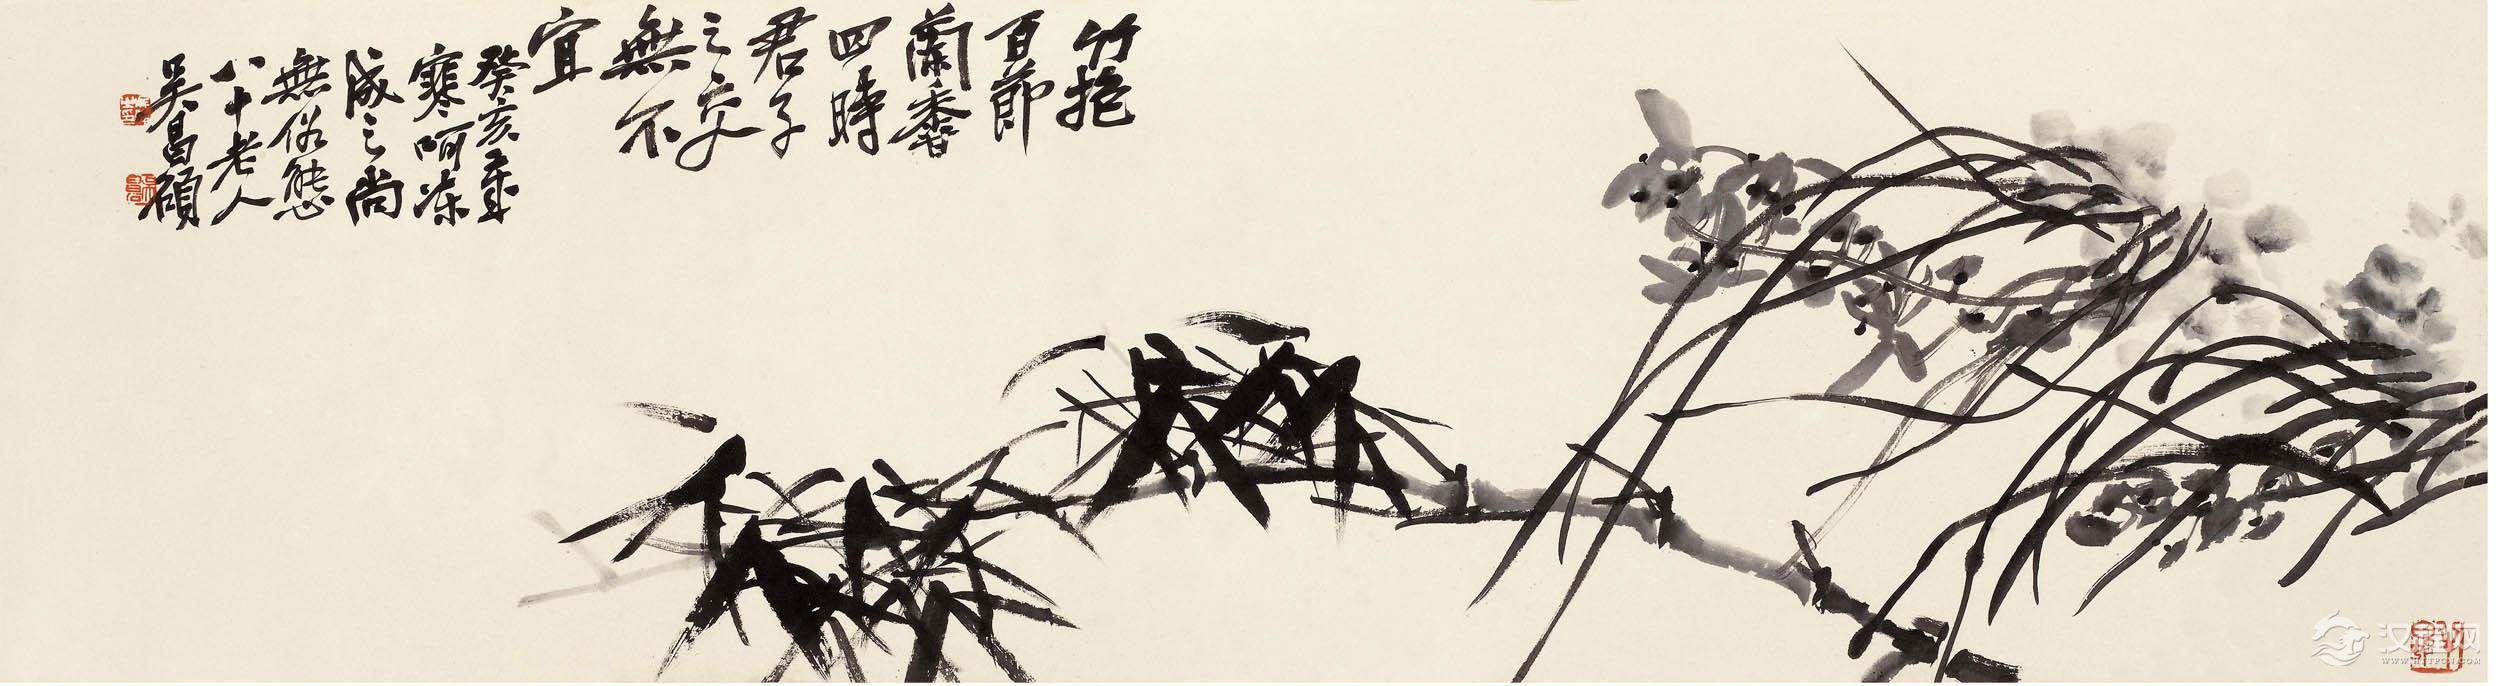 竹抱
百節
蘭香
四時
君子
之交
無不
宜
癸亥歲
寒呵凍
成之尚
無俗態
八十老人
吳昌碩
汉程网
WWW.HTTPCN.COM